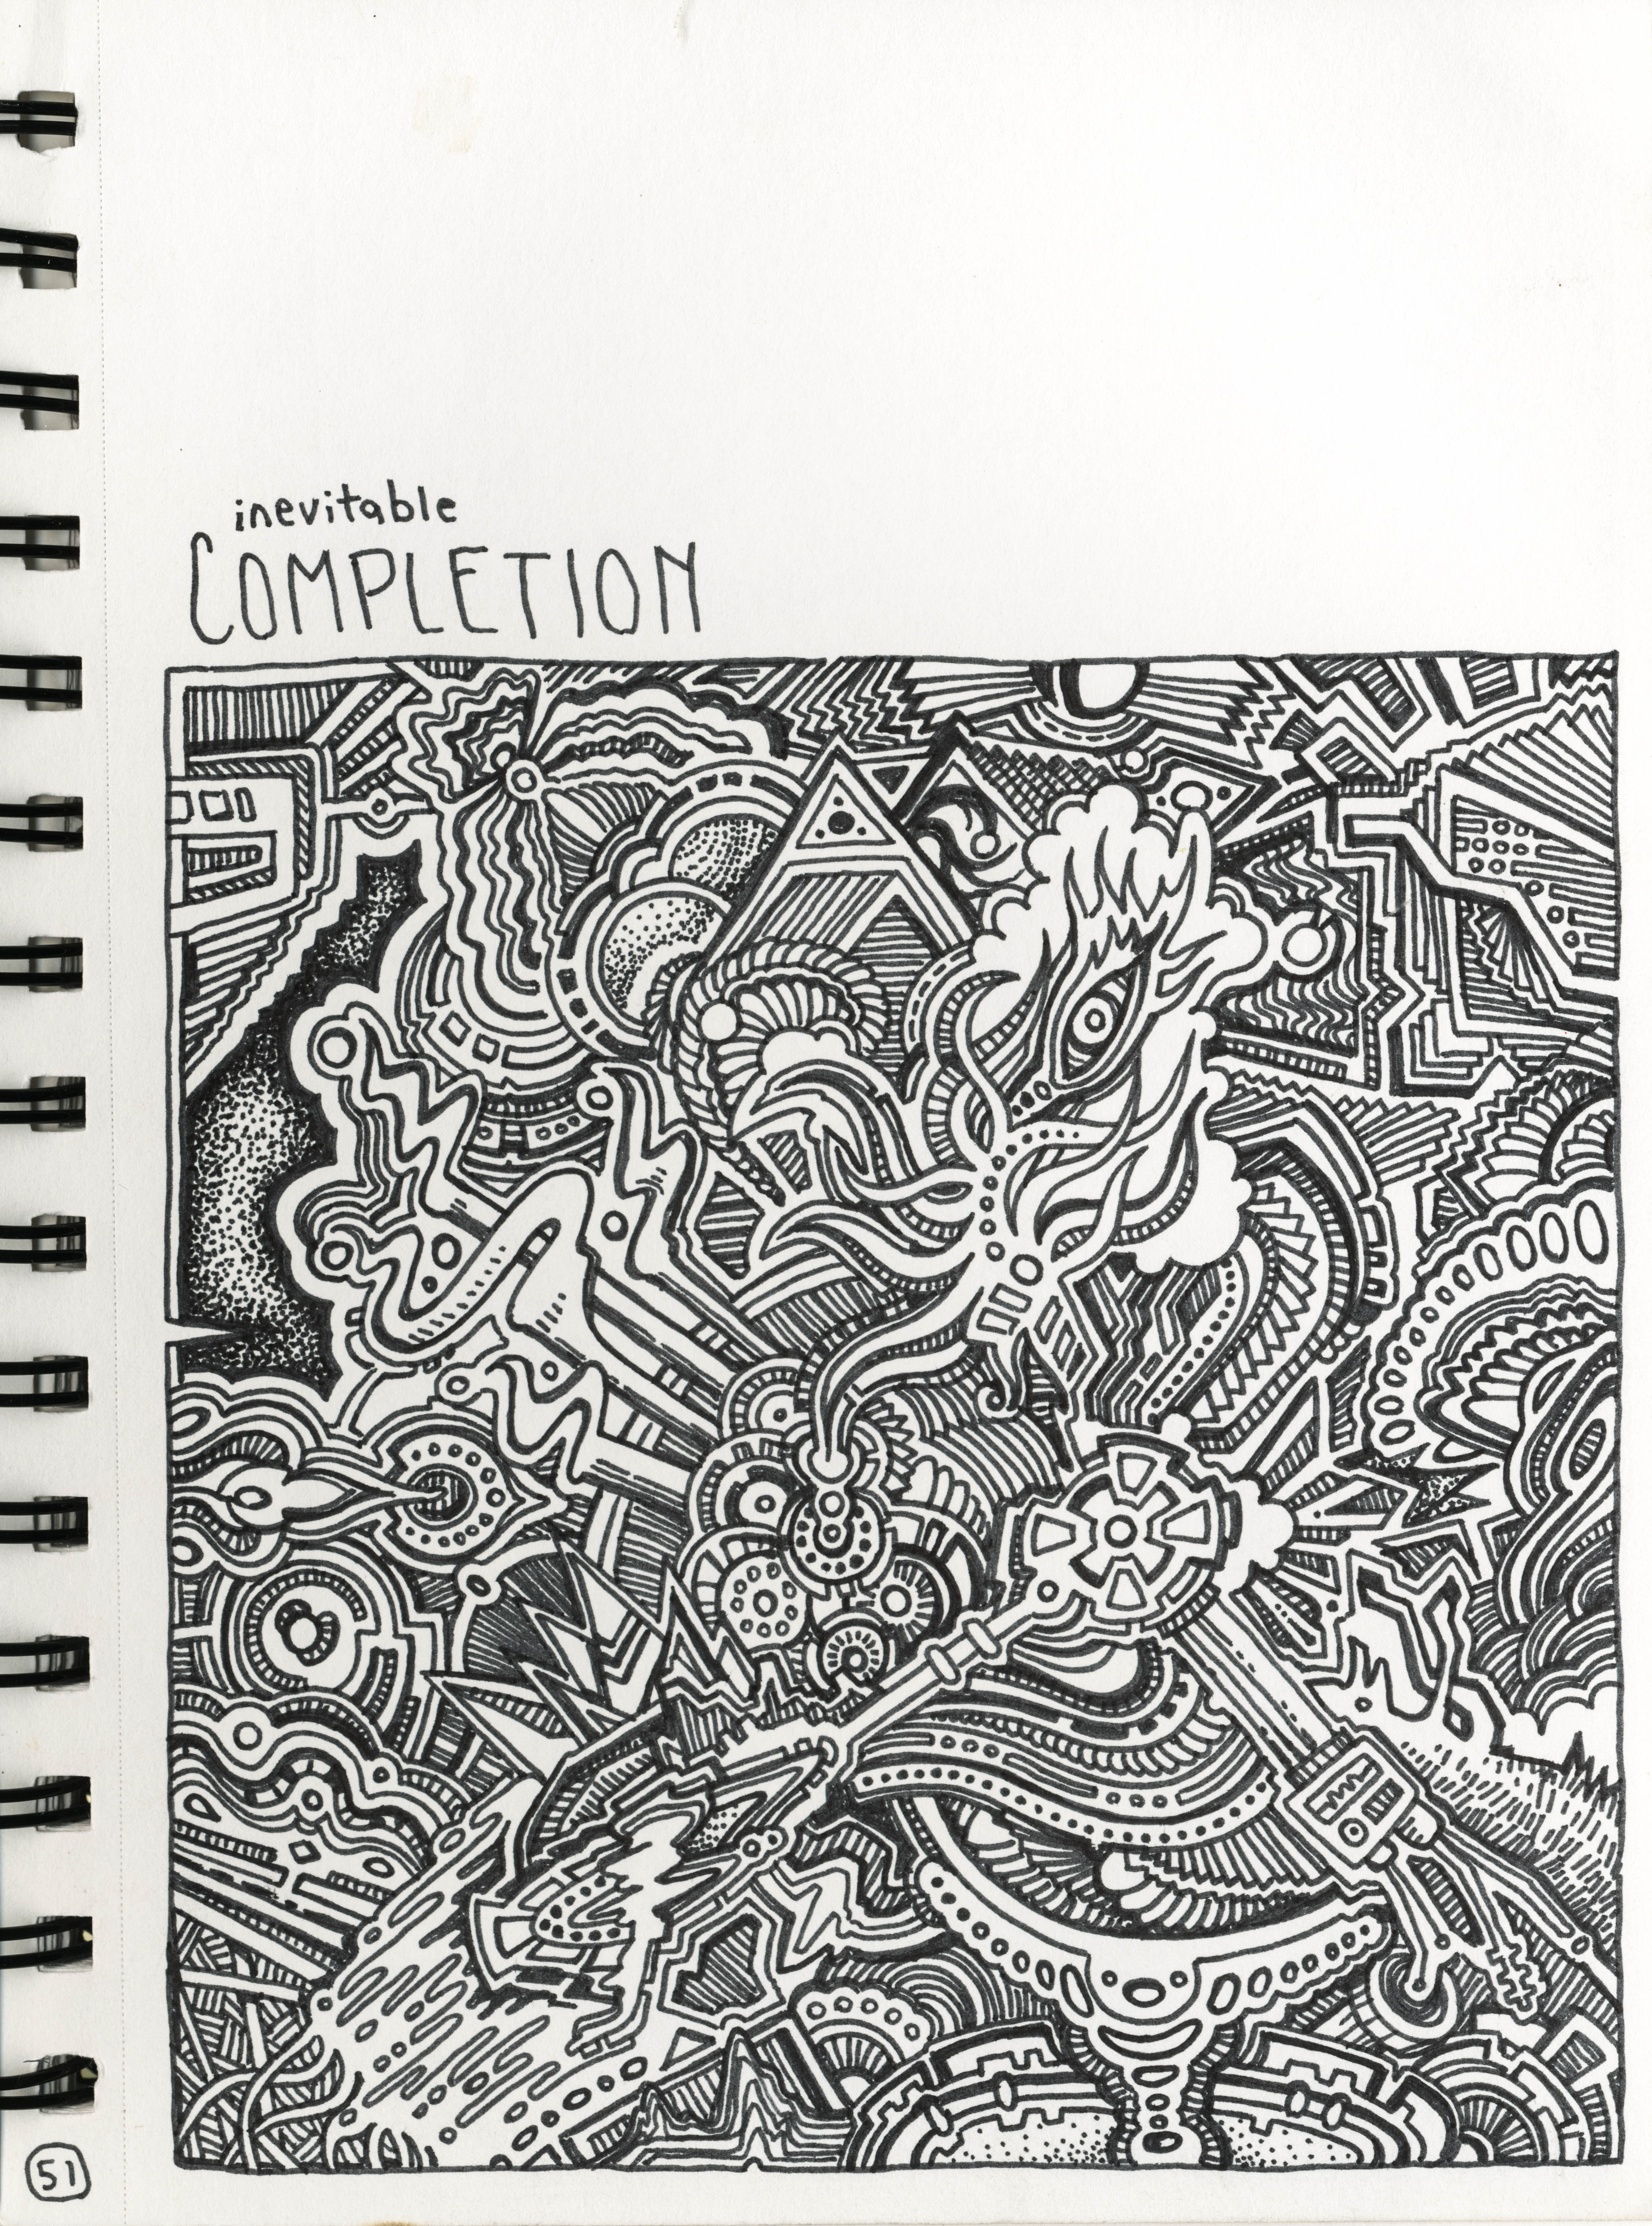 inevitable
COMPLETION
51